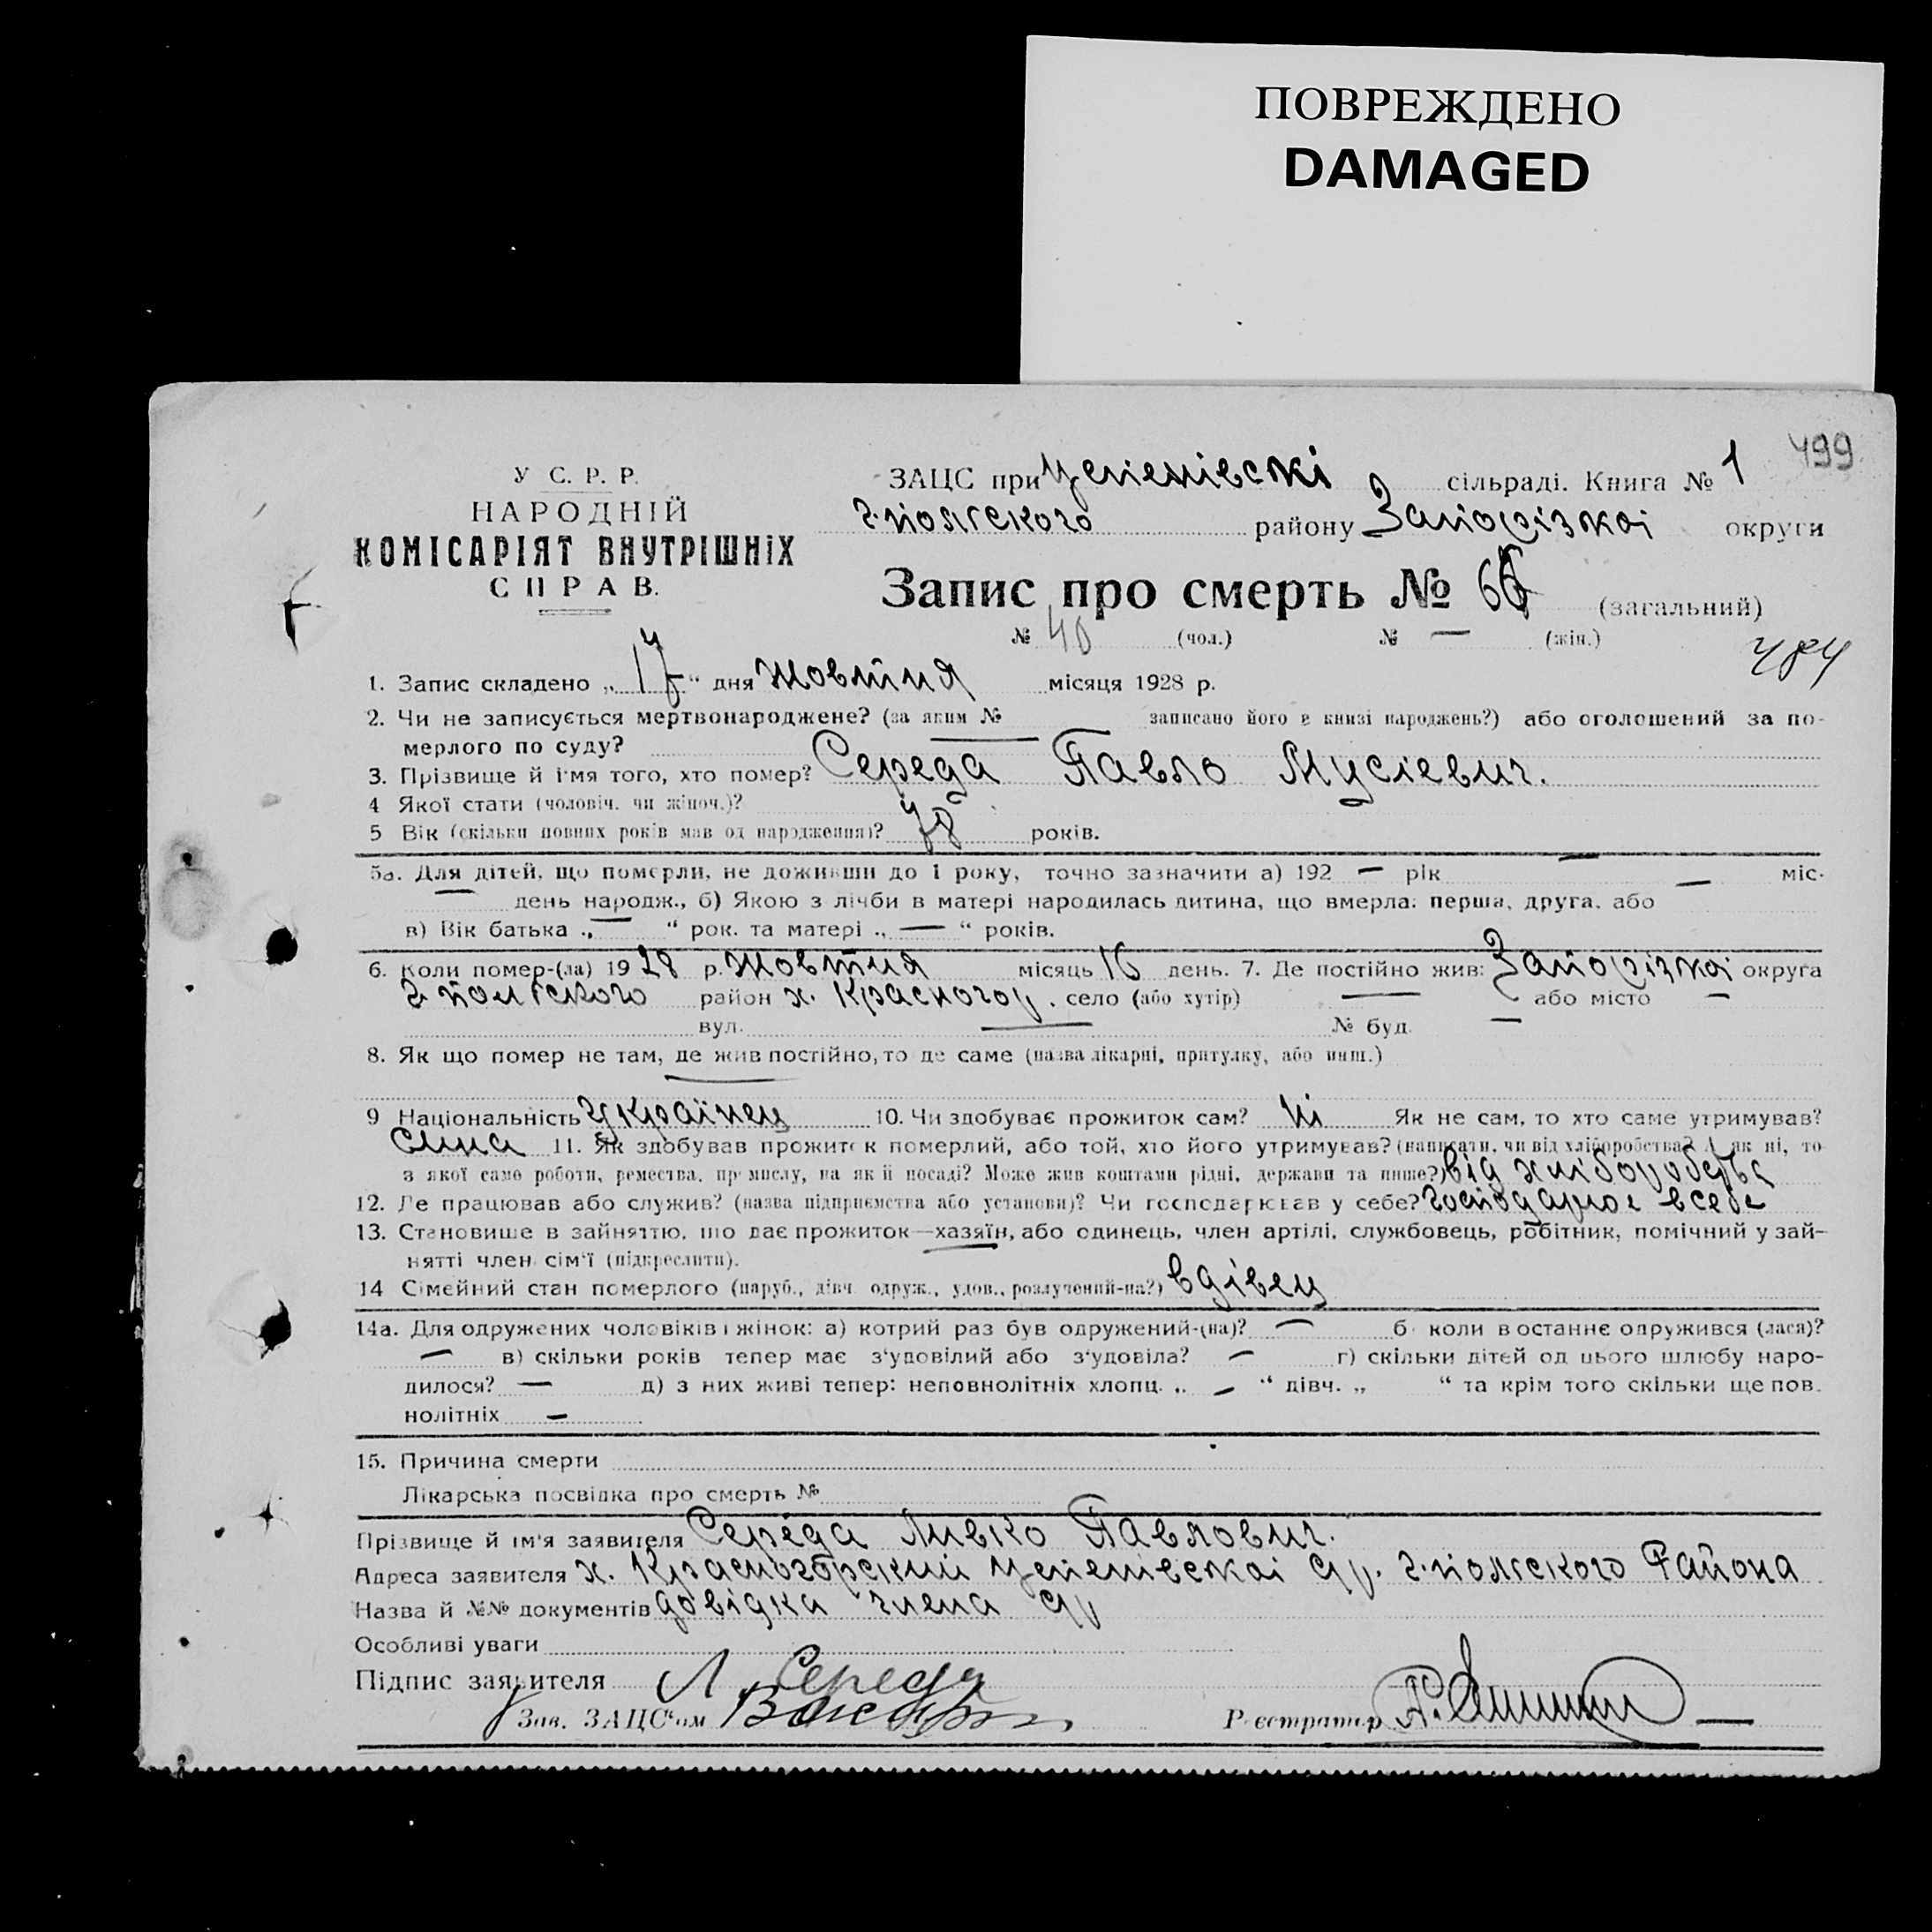 ПОВРЕЖДЕНО
DAMAGED
499
У С. Р. Р.
НАРОДНІЙ
КОМІСАРІЯТ ВНУТРІШНІХ
СПРАВ.
ЗАЦС при Успенівскі сільраді. Книга № 1
г.-полгского району Запорізкоі округи
Запис про смерть № 66 (загальний)
№ 40 (чол.) № — (жін.)
484
1. Запис складено „17“ дня Жовтня місяця 1928 р.
2. Чи не записується мертвонароджене? (за яким № — записано його в книзі народжень?) або оголошений за по-
мерлого по суду?
3. Прізвище й ім'я того, хто помер? Середа Павло Мусіевич.
4 Якої стати (чоловіч. чи жіноч.)?
5 Вік (скільки повних років мав од народження)? 78 років.
5а. Для дітей, що померли, не доживши до 1 року, точно зазначити а) 192 — рік — міс.
— день народж., б) Якою з лічби в матері народилась дитина, що вмерла: перша, друга, або —
в) Вік батька „ — “ рок. та матері „ — “ років.
6. Коли помер-(ла) 1928 р. Жовтня місяць 16 день. 7. Де постійно жив: Запорізкоі округа
г. полгского район х. Красногор. село (або хутір) — або місто —
вул. — № буд. —
8. Як що помер не там, де жив постійно, то де саме (назва лікарні, притулку, або инш.)
—
9 Національність Українец 10. Чи здобуває прожиток сам? Ні Як не сам, то хто саме утримував?
Сина 11. Як здобував прожиток померлий, або той, хто його утримував? (написати, чи від хліборобства? А як ні, то
з якої саме роботи, ремества, промислу, на якій посаді? Може жив коштами рідні, держави та инше?) від хліборобства
12. Де працював або служив? (назва підприємства або установи)? Чи господарював у себе? Господарює в себе
13. Становище в зайняттю, що дає прожиток—хазяїн, або одинець, член артілі, службовець, робітник, помічний у зай-
нятті член сім'ї (підкреслити).
14 Сімейний стан померлого (паруб., дівч. одруж., удов., розлучений-на?) вдівец
14а. Для одружених чоловіків і жінок: а) котрий раз був одружений-(на)? — б) коли в останнє одружився (лася)?
— в) скільки років тепер має з'удовілий або з'удовіла? — г) скільки дітей од цього шлюбу наро-
дилося? — д) з них живі тепер: неповнолітніх хлопц. „ — “ дівч. „ “ та крім того скільки ще пов.
нолітніх —
15. Причина смерти
Лікарська посвідка про смерть №
Прізвище й ім'я заявителя Середа Ливко Павлович.
Адреса заявителя х. Красногорский Успенівскоі С/р. г.-полгского Района
Назва й №№ документів довідка члена С/р
Особливі уваги
Підпис заявителя Л. Середа
Зав. ЗАЦС'ом
Реєстратор